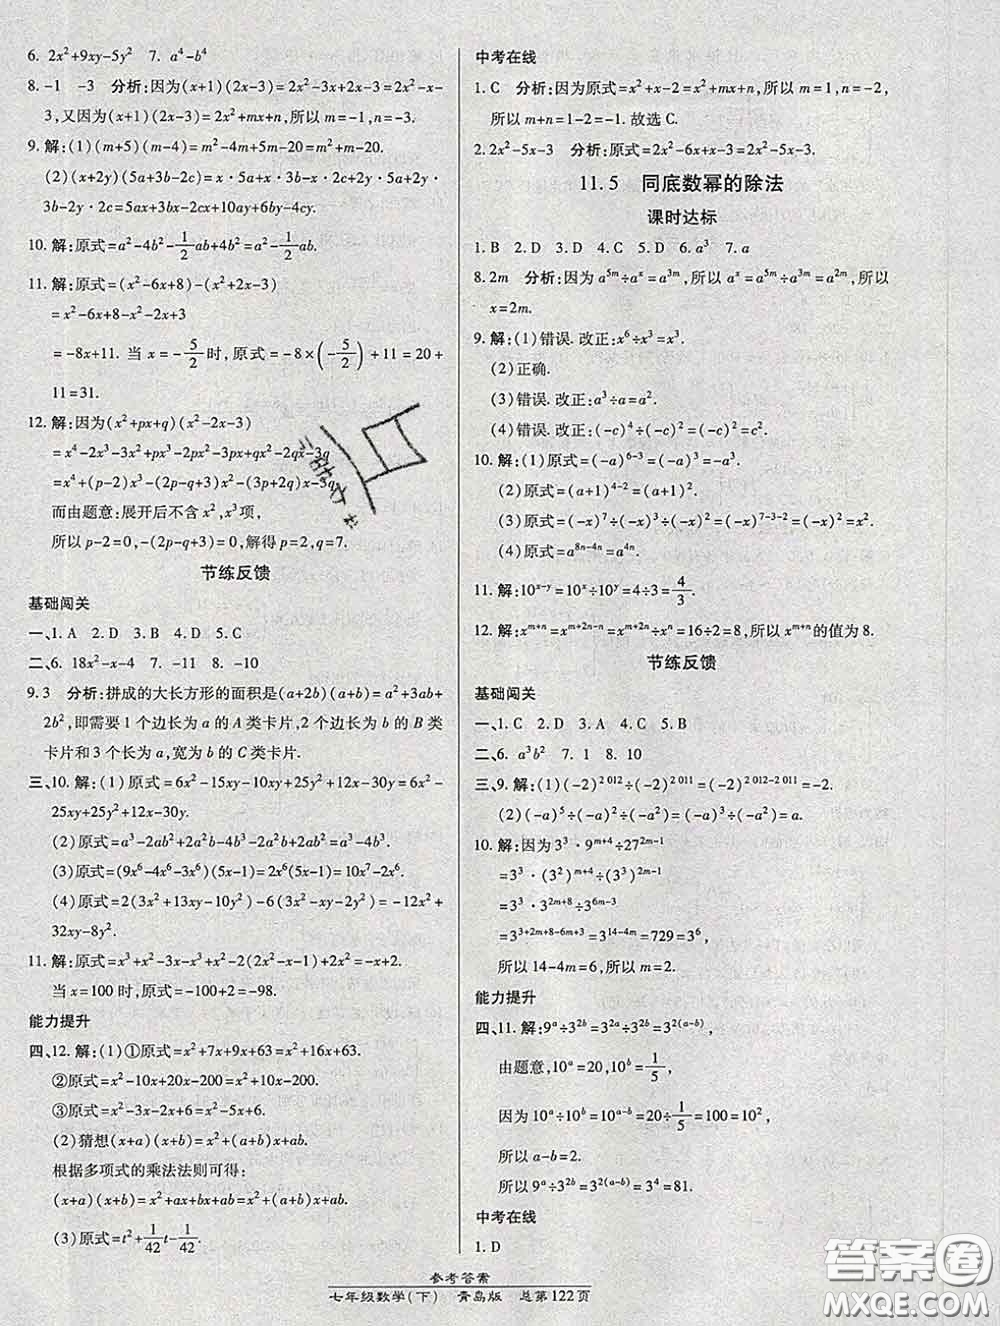 6. 2x²+9xy-5y²  7. a⁴-b⁴
8. -1  -3  分析:因为(x+1)(2x-3)=2x²-3x+2x-3=2x²-x-
3,又因为(x+1)(2x-3)=2x²+mx+n,所以 m=-1,n=-3.
9. 解:(1)(m+5)(m-4)=m²-4m+5m-20=m²+m-20.
(2)(x+2y)(5a+3b-2c)=x·5a+x·3b-x·2c+2y·5a+2y·
3b-2y·2c=5ax+3bx-2cx+10ay+6by-4cy.
10. 解:原式=a²-4b²-1/2ab+4b²=a²-1/2ab.
11. 解:原式=(x²-6x+8)-(x²+2x-3)
=x²-6x+8-x²-2x+3
=-8x+11. 当 x=-5/2时,原式=-8×(-5/2)+11=20+
11=31.
12. 解:因为(x²+px+q)(x²-2x-3)
=x⁴-2x³-3x²+px³-2px²-3px+qx²-2qx-3q
=x⁴+(p-2)x³-(2p-q+3)x²-(3p+2q)x-3q
而由题意:展开后不含 x²,x³项,
所以 p-2=0,-(2p-q+3)=0,解得 p=2,q=7.
节练反馈
基础闯关
一、1. A  2. D  3. B  4. D  5. C
二、6. 18x²-x-4  7. -11  8. -10
9. 3  分析:拼成的大长方形的面积是(a+2b)(a+b)=a²+3ab+
2b²,即需要 1 个边长为 a 的 A 类卡片,2 个边长为 b 的 B 类
卡片和 3 个长为 a,宽为 b 的 C 类卡片.
三、10. 解:(1)原式=6x²-15xy-10xy+25y²+12x-30y=6x²-
25xy+25y²+12x-30y.
(2)原式=a³-2ab²+2a²b-4b³-2a²b+2ab²=a³-4b³.
(3)原式=(9x⁶-4x⁶-3x⁶)(5x-1)=2x⁶(5x-1)=10x⁷-2x⁶.
(4)原式=2(3x²+13xy-10y²)-(2x²-xy-2y²)=4x²+
32xy-8y².
11. 解:原式=x³+x²-3x-x³+x²-2(2x²-x-1)=-x+2.
当 x=100 时,原式=-100+2=-98.
能力提升
四、12. 解:(1)①原式=x²+7x+9x+63=x²+16x+63.
②原式=x²-10x+20x-200=x²+10x-200.
③原式=x²-3x-2x+6=x²-5x+6.
(2)猜想(x+a)(x+b)=x²+(a+b)x+ab.
根据多项式的乘法法则可得:
(x+a)(x+b)=x²+ax+bx+ab=x²+(a+b)x+ab.
(3)原式=t²+1/42t-1/42.
中考在线
1. C  分析:因为原式=x²+x-2=x²+mx+n,所以 m=1,n=-2,
所以 m+n=1-2=-1. 故选 C.
2. 2x²-5x-3  分析:原式=2x²-6x+x-3=2x²-5x-3.
11.5  同底数幂的除法
课时达标
1. B  2. D  3. D  4. C  5. D  6. a³  7. a
8. 2m  分析:因为 a⁵ᵐ÷aˣ=a³ᵐ,所以 aˣ=a⁵ᵐ÷a³ᵐ=a²ᵐ,所以
x=2m.
9. 解:(1)错误. 改正:x⁶÷x³=x³.
(2)正确.
(3)错误. 改正:a³÷a=a².
(4)错误. 改正:(-c)⁴÷(-c)²=(-c)²=c².
10. 解:(1)原式=(-a)⁶⁻³=(-a)³=-a³.
(2)原式=(a+1)⁴⁻²=(a+1)².
(3)原式=(-x)⁷÷(-x)³÷(-x)²=(-x)⁷⁻³⁻²=(-x)²=x².
(4)原式=a⁸ⁿ⁻⁴ⁿ=a⁴ⁿ.
11. 解:10ˣ⁻ʸ=10ˣ÷10ʸ=4÷3=4/3.
12. 解:xᵐ⁺ⁿ=xᵐ⁺²ⁿ⁻ⁿ=xᵐ⁺²ⁿ÷xⁿ=16÷2=8,所以 xᵐ⁺ⁿ的值为 8.
节练反馈
基础闯关
一、1. C  2. D  3. A  4. C  5. B
二、6. a³b²  7. 1  8. 10
三、9. 解:(1)(-2)²⁰¹²÷(-2)²⁰¹¹=(-2)²⁰¹²⁻²⁰¹¹=-2.
(2)(-a)⁵÷(-a²)÷(-a)²=(-a)³÷(-a²)=a.
10. 解:因为 3³·9ᵐ⁺⁴÷27²ᵐ⁻¹
=3³·(3²)ᵐ⁺⁴÷(3³)²ᵐ⁻¹
=3³·3²ᵐ⁺⁸÷3⁶ᵐ⁻³
=3³⁺²ᵐ⁺⁸⁻⁶ᵐ⁺³=3¹⁴⁻⁴ᵐ=729=3⁶,
所以 14-4m=6,所以 m=2.
能力提升
四、11. 解:9ᵃ÷3²ᵇ=3²ᵃ÷3²ᵇ=3²⁽ᵃ⁻ᵇ⁾,
由题意,10ᵃ=20,10ᵇ=1/5,
因为 10ᵃ÷10ᵇ=10ᵃ⁻ᵇ=20÷1/5=100=10²,
所以 a-b=2.
所以 9ᵃ÷3²ᵇ=3²⁽ᵃ⁻ᵇ⁾=3⁴=81.
中考在线
1. D
参考答案
七年级数学(下)  青岛版  总第122页
答案圈
MXQE.COM